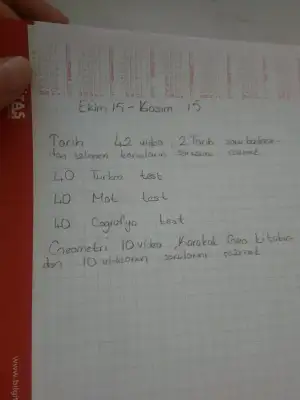 Ekim 15 - Kasım 15
Tarih 42 video, 2 Tarih soru bankasın-
dan konuların sorularını çözmek
40 Türkçe test
40 Mat test
40 Coğrafya test
Geometri 10 video, Karekök Geo kitabın-
dan 10 videonun sorularını çözmek
TAS
www.bilgi